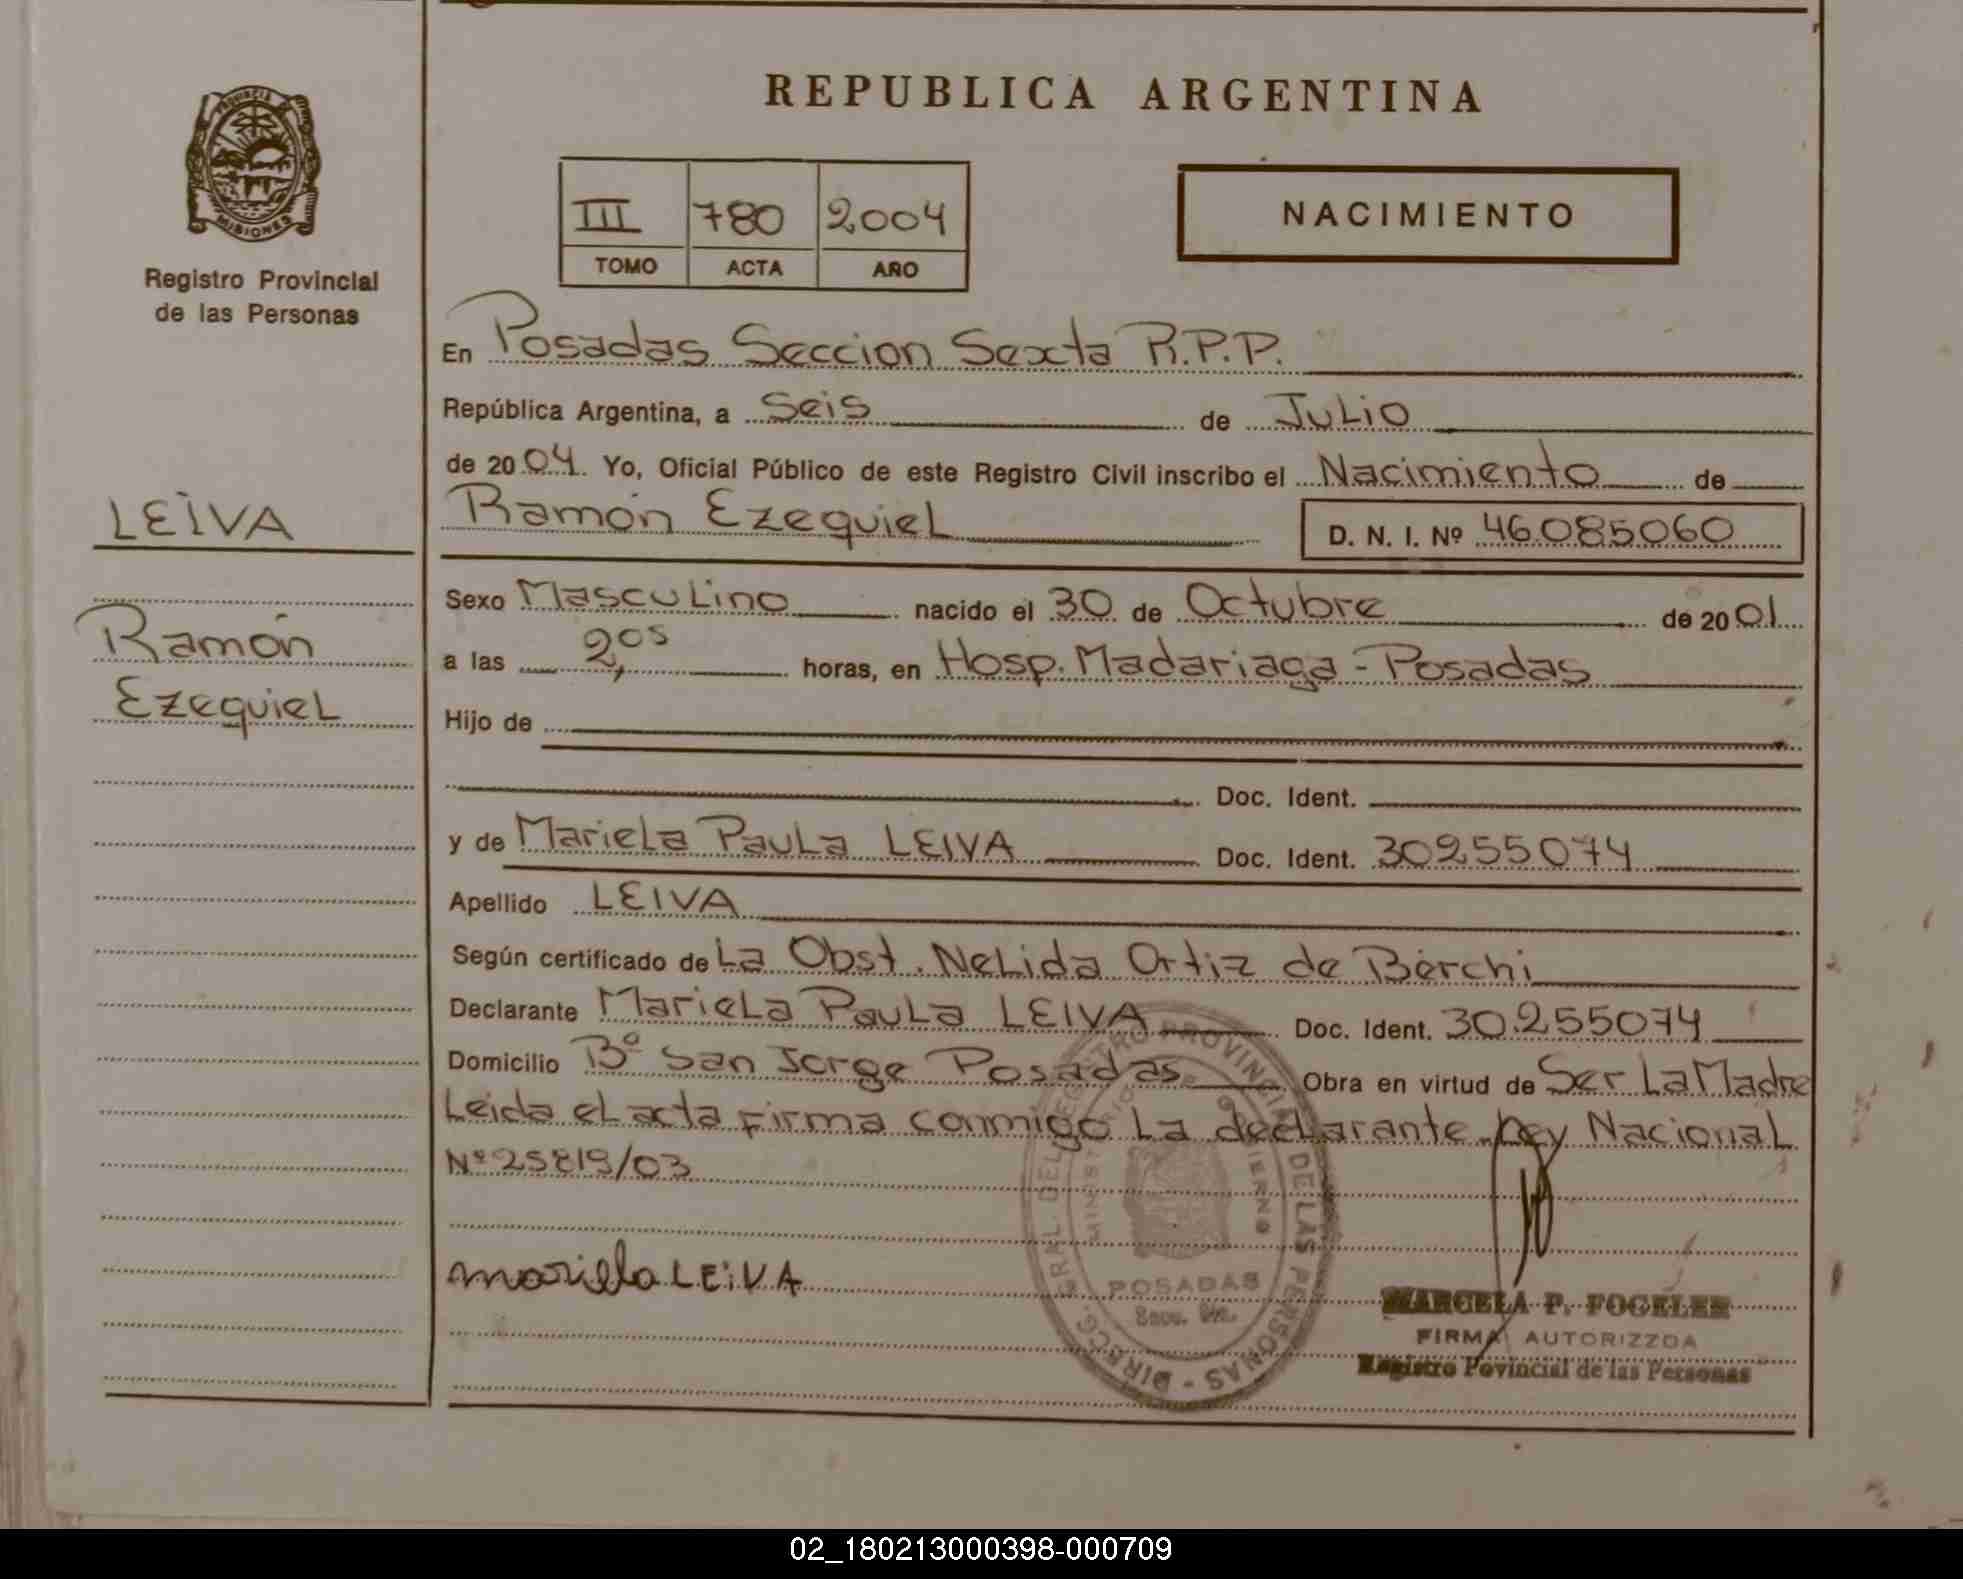 REPUBLICA ARGENTINA
PROVINCIA DE
MISIONES
Registro Provincial
de las Personas
III 780 2004
TOMO ACTA AÑO
NACIMIENTO
En Posadas Seccion Sexta R.P.P.
República Argentina, a Seis de Julio
de 2004. Yo, Oficial Público de este Registro Civil inscribo el Nacimiento de
LEIVA
Ramón Ezequiel D. N. I. Nº 46085060
Ramón
Ezequiel
Sexo Masculino nacido el 30 de Octubre de 2001
a las 2,05 horas, en Hosp. Madariaga - Posadas
Hijo de
Doc. Ident.
y de Mariela Paula LEIVA Doc. Ident. 30255074
Apellido LEIVA
Según certificado de La Obst. Nelida Ortiz de Berchi
Declarante Mariela Paula LEIVA Doc. Ident. 30.255074
Domicilio Bº San Jorge Posadas Obra en virtud de Ser La Madre
Leida el acta firma conmigo La declarante Ley Nacional
Nº 25819/03
mariela LEIVA
DIRECC. GRAL. DEL REGISTRO PROVINCIAL DE LAS PERSONAS
POSADAS
MARCELA P. FOGELER
FIRMA AUTORIZZDA
Registro Povincial de las Personas
02_180213000398-000709